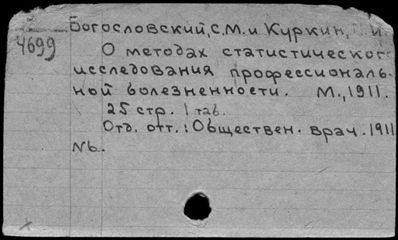 Богословский, С.М. и Куркин, И.
4699
О методах статистического
исследования профессиональ-
ной болезненности. М., 1911.
25 стр. 1 таб.
Отд. отт.: Обществен. врач. 1911
№6.